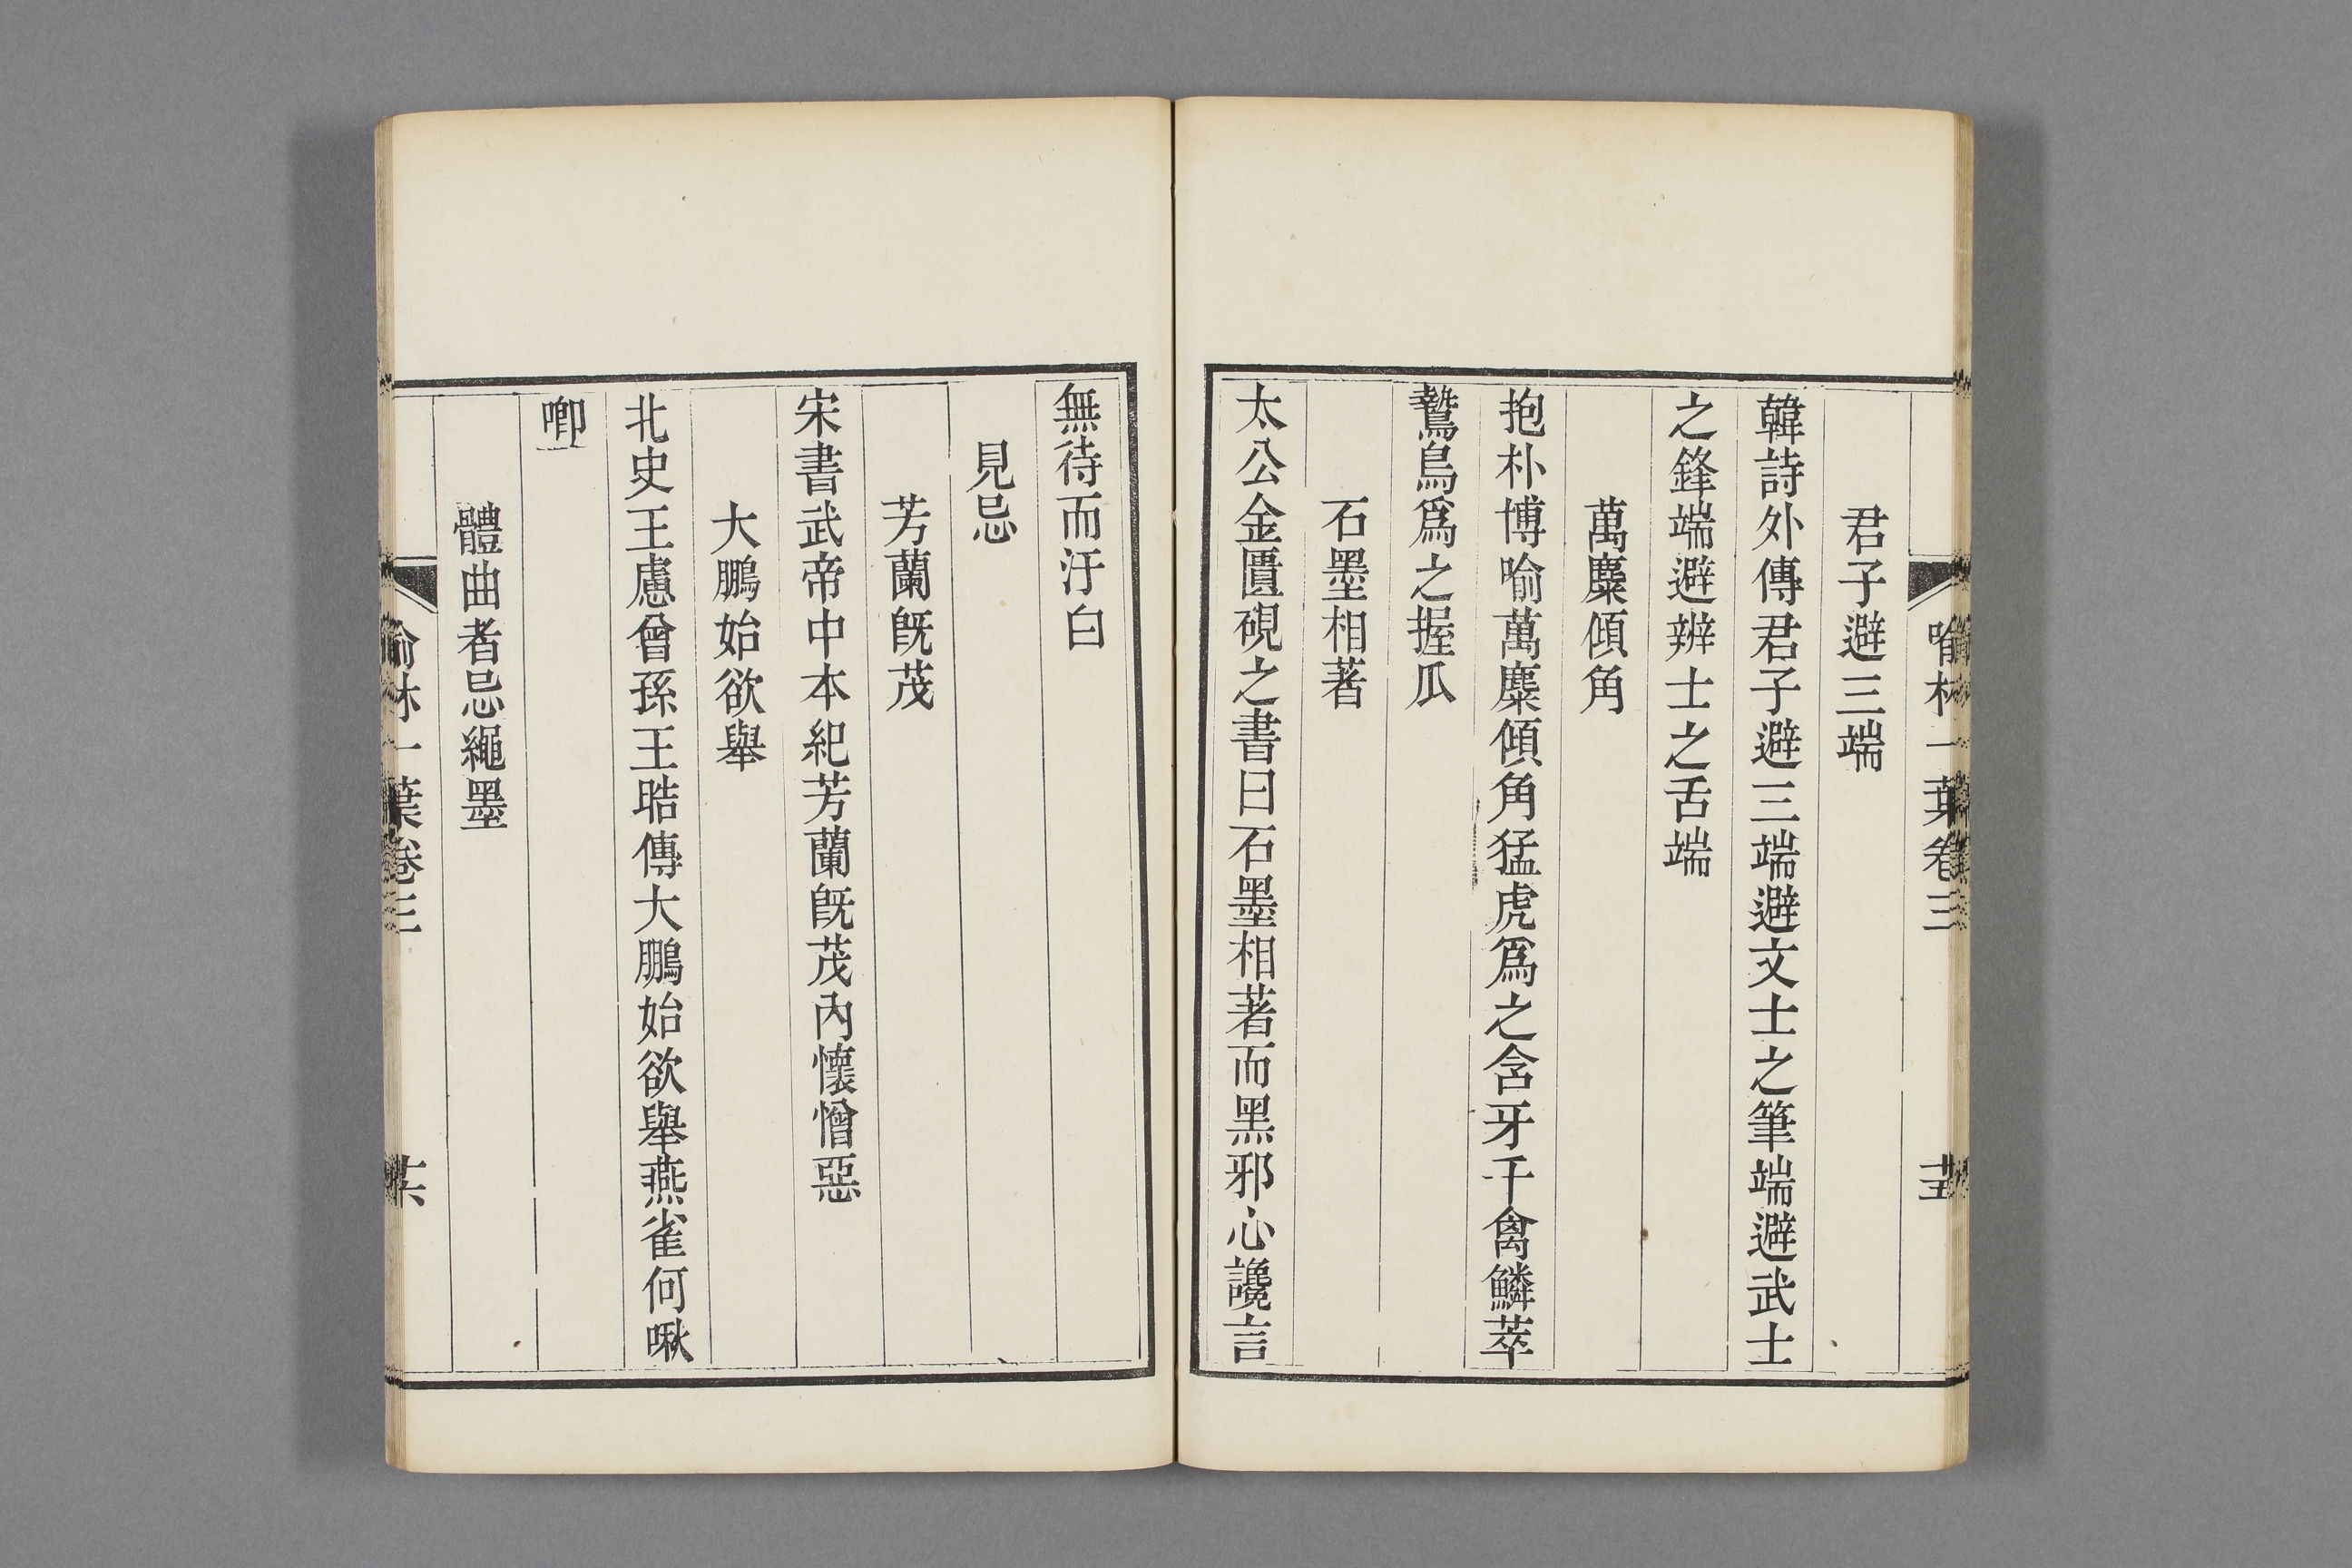 喻林一葉卷三
君子避三端
韓詩外傳君子避三端避文士之筆端避武士
之鋒端避辨士之舌端
萬麋傾角
抱朴博喻萬麋傾角猛虎爲之含牙千禽鱗萃
鷙鳥爲之握瓜
石墨相著
太公金匱硯之書曰石墨相著而黑邪心讒言
無待而汙白
見忌
芳蘭旣茂
宋書武帝中本紀芳蘭旣茂內懷憎惡
大鵬始欲舉
北史王慮曾孫王晧傳大鵬始欲舉燕雀何啾
唧
體曲者忌繩墨
喻林一葉卷三